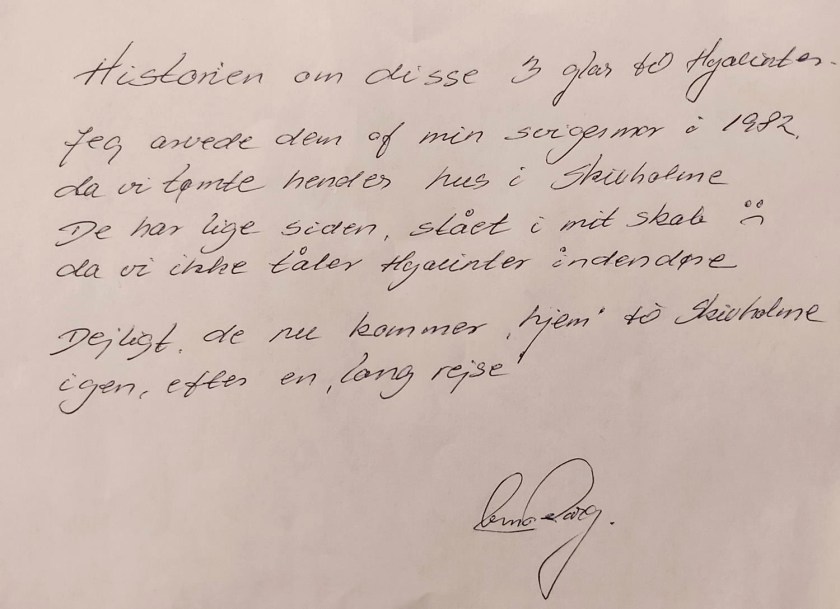 Historien om disse 3 glas til Hyacinter.
Jeg arvede dem af min svigermor i 1982,
da vi tømte hendes hus i Skivholme
De har lige siden, stået i mit skab ☹
da vi ikke tåler Hyacinter indendøre
Dejligt, de nu kommer "hjem" til Skivholme
igen, efter en "lang rejse"